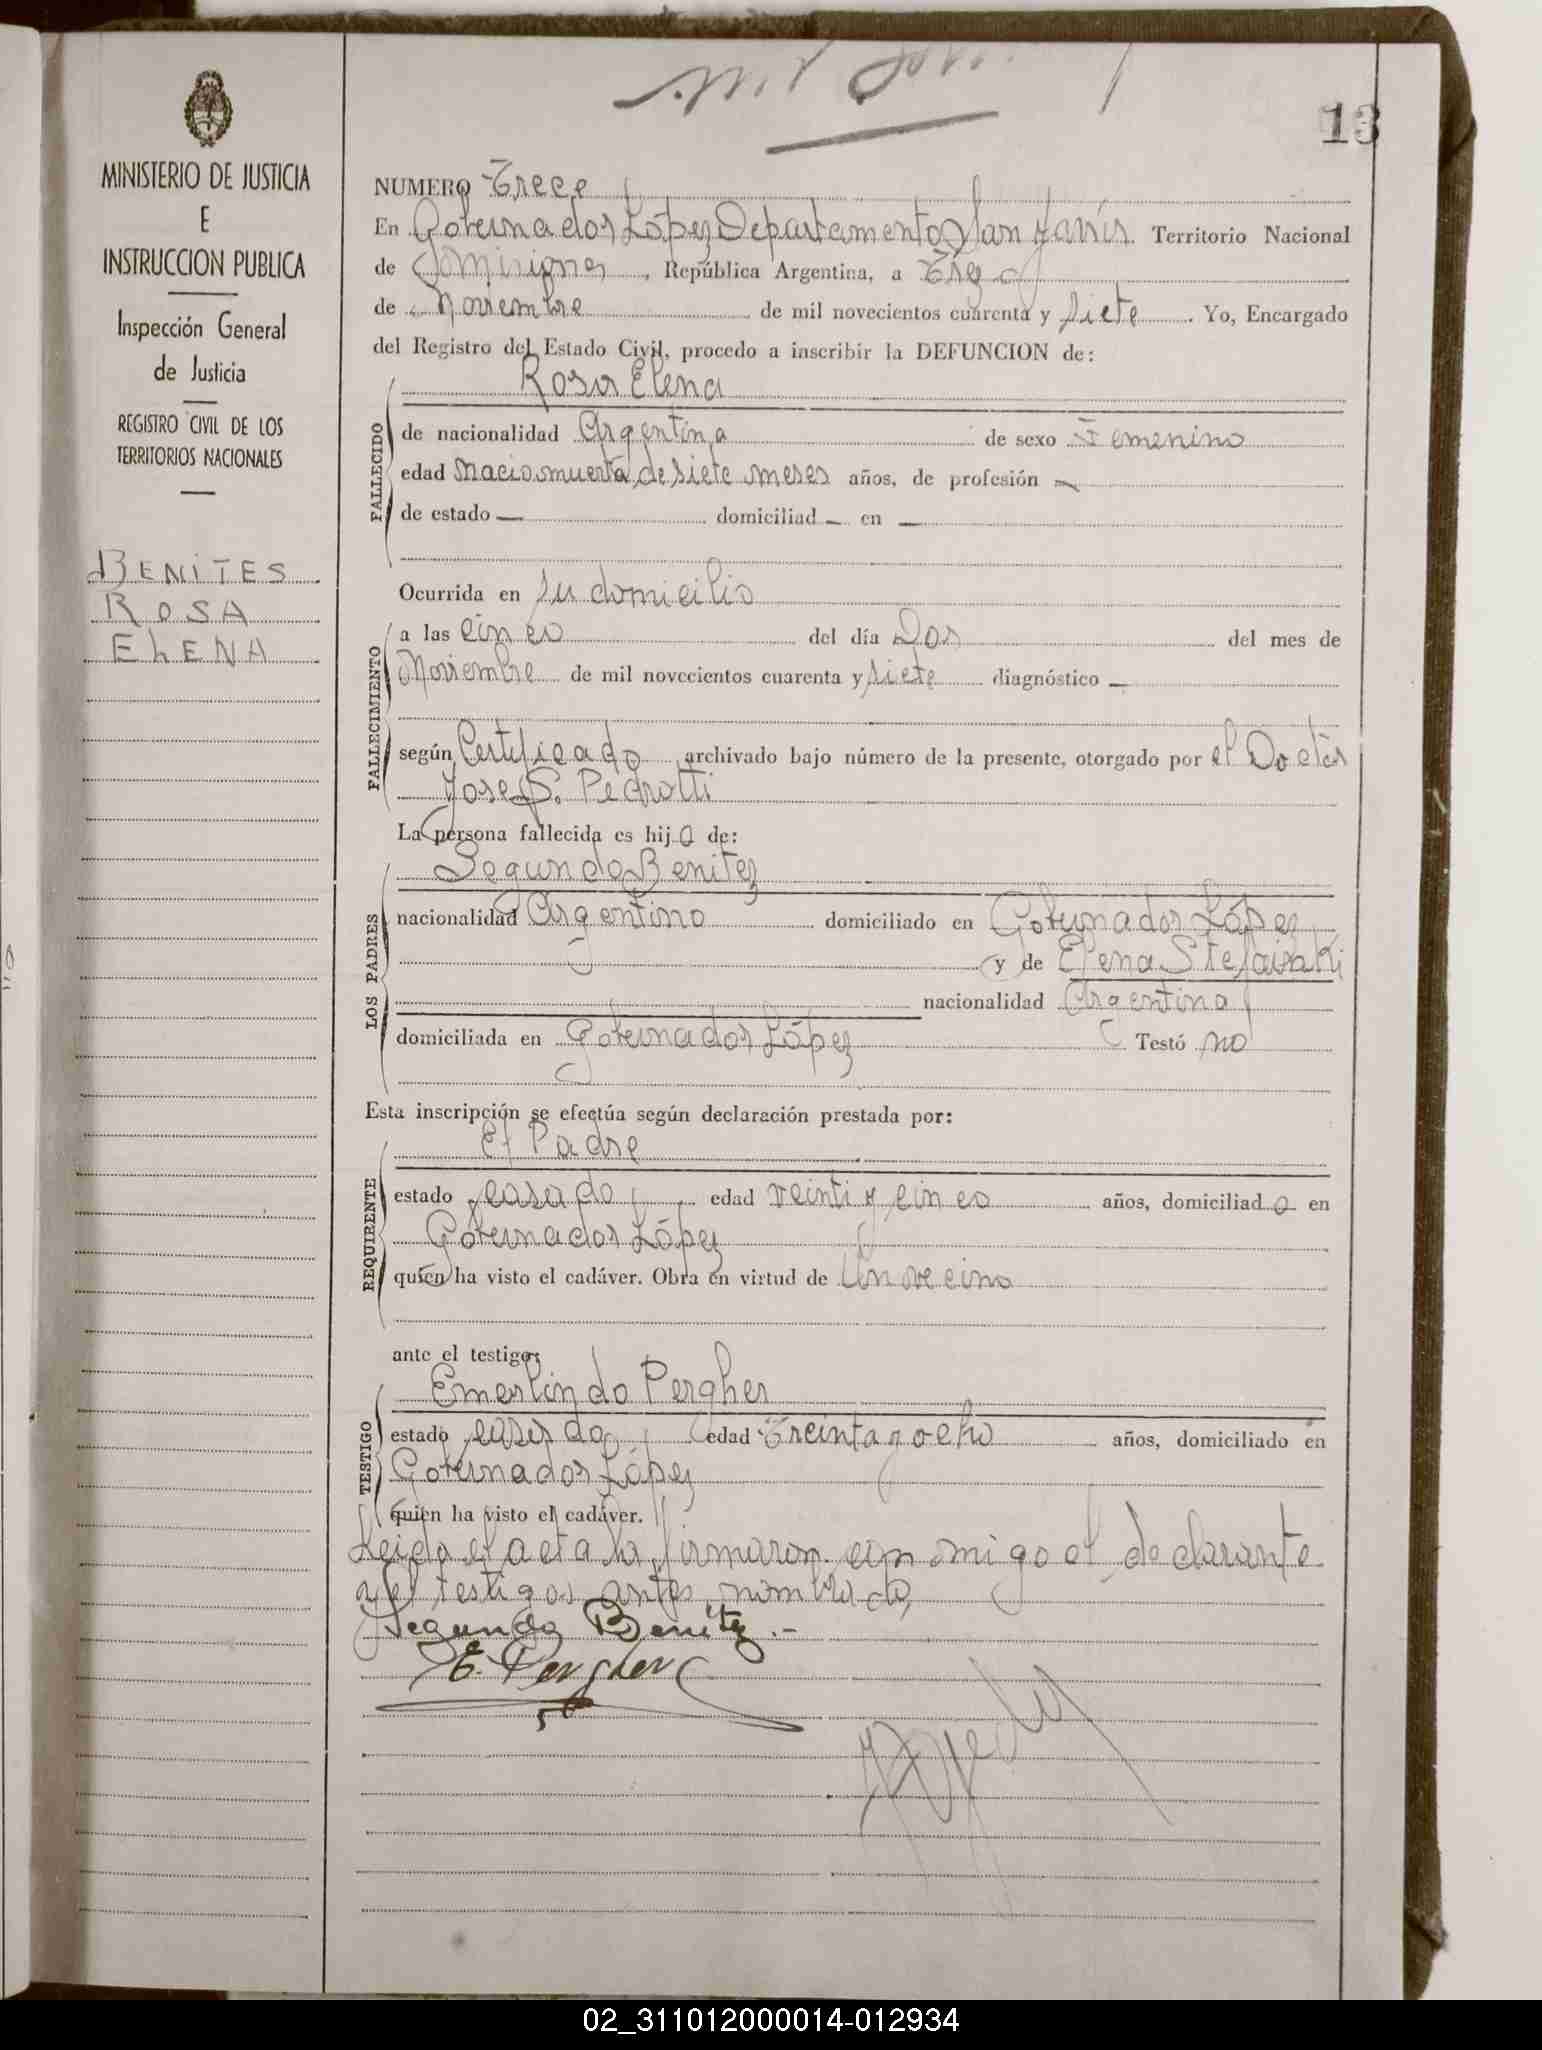 13
MINISTERIO DE JUSTICIA
E
INSTRUCCION PUBLICA
Inspección General
de Justicia
REGISTRO CIVIL DE LOS
TERRITORIOS NACIONALES
BENITES
ROSA
ELENA
NUMERO Trece
En Gobernador López Departamento San Javier. Territorio Nacional
de Misiones, República Argentina, a Tres
de Noviembre de mil novecientos cuarenta y siete. Yo, Encargado
del Registro del Estado Civil, procedo a inscribir la DEFUNCION de:
Rosa Elena
FALLECIDO
de nacionalidad Argentina de sexo Femenino
edad nacio muerta de siete meses años, de profesión —
de estado — domiciliad — en —
Ocurrida en su domicilio
FALLECIMIENTO
a las cinco del día Dos del mes de
Noviembre de mil novecientos cuarenta y siete diagnóstico —
según Certificado archivado bajo número de la presente, otorgado por el Doctor
Jose S. Pedrotti
La persona fallecida es hija de:
LOS PADRES
Segundo Benitez
nacionalidad Argentino domiciliado en Gobernador López
y de Elena
nacionalidad Argentina
domiciliada en Gobernador López Testó no
Esta inscripción se efectúa según declaración prestada por:
REQUIRENTE
El Padre
estado casado edad veinti y cinco años, domiciliado en
Gobernador López
quien ha visto el cadáver. Obra en virtud de Un vecino
ante el testigo:
TESTIGO
Emerlindo Pergher
estado casado edad Treinta y ocho años, domiciliado en
Gobernador López
quien ha visto el cadáver.
Leido el acta la firmaron con migo el declarante
y el testigos antes nombrado,
Segundo Benitez.-
E. Pergher
02_311012000014-012934